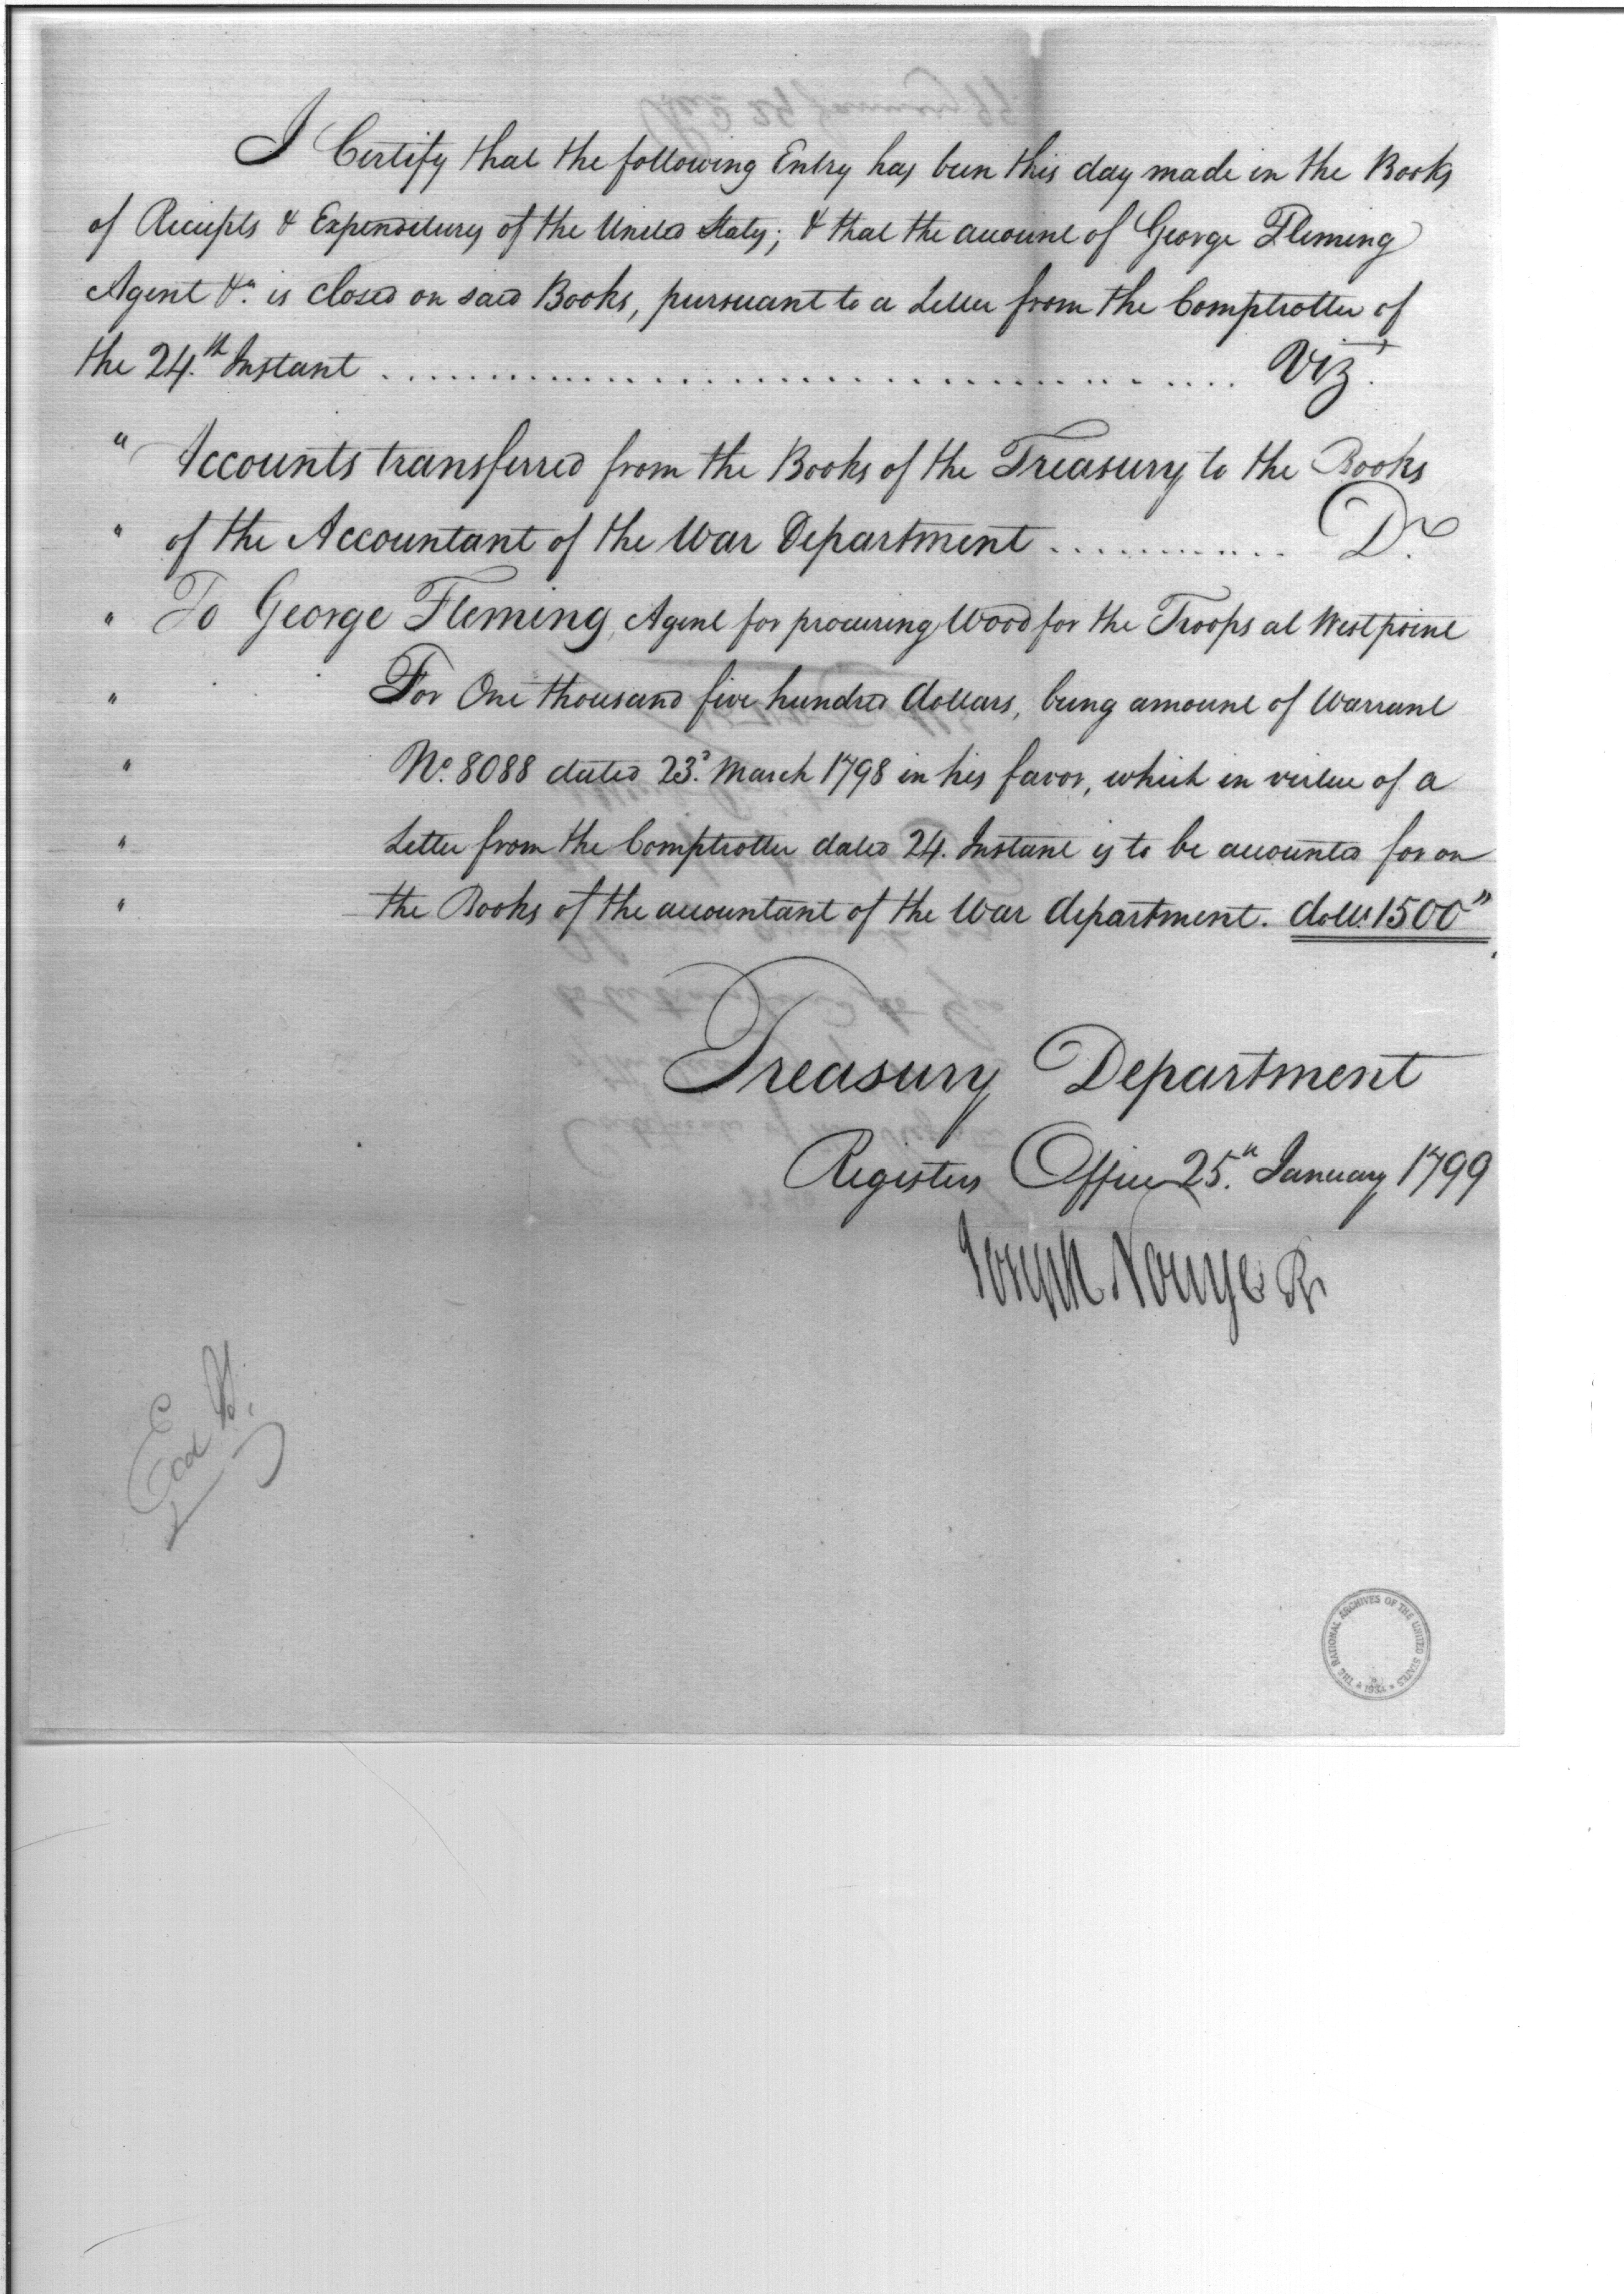 I Certify that the following Entry has been this day made in the Books
of Receipts & Expenditures of the United States; & that the account of George Fleming
Agent &ca. is closed on said Books, pursuant to a Letter from the Comptroller of
the 24.th Instant ........................................ Vizt.
" Accounts transferred from the Books of the Treasury to the Books
" of the Accountant of the War Department ............ Dr.
" To George Fleming, Agent for procuring Wood for the Troops at Westpoint
" For One thousand five hundred dollars, being amount of Warrant
" No. 8088 dated 23d. March 1798 in his favor, which in virtue of a
" Letter from the Comptroller dated 24. Instant is to be accounted for on
" the Books of the accountant of the War department. dolls. 1500"
Treasury Department
Registers Office 25.th January 1799
Joseph Nourse R.
THE NATIONAL ARCHIVES OF THE UNITED STATES